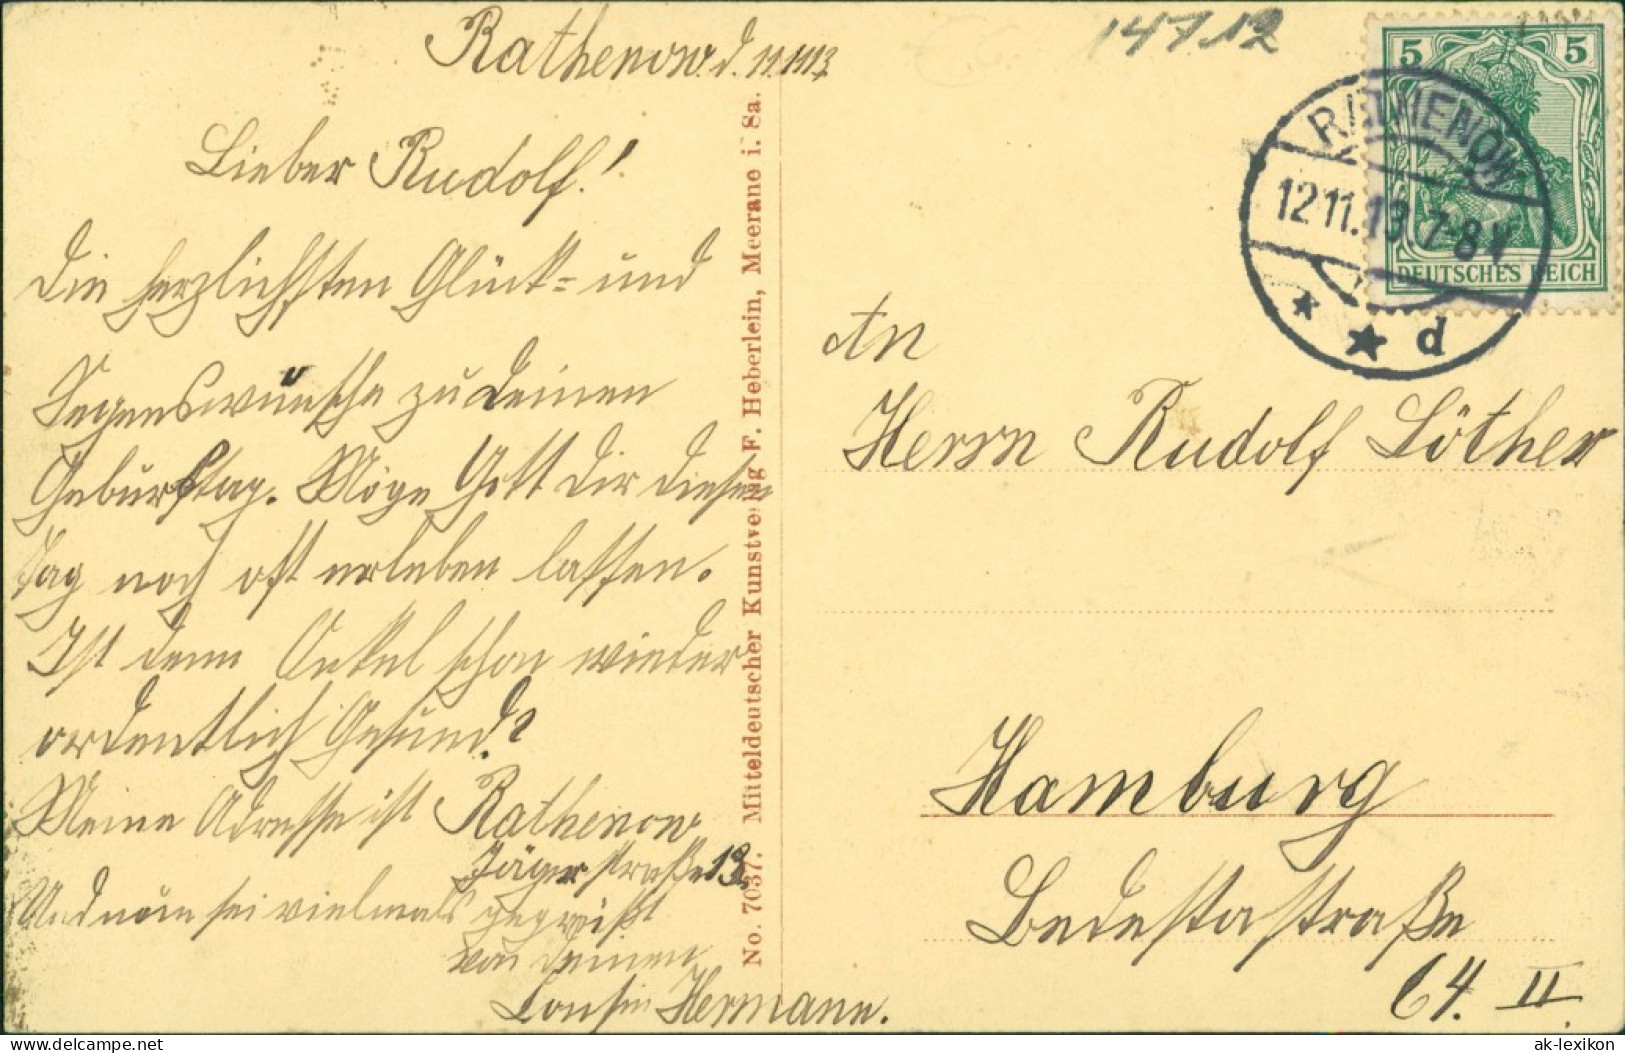 Rathenow. d. 11.11.13
Lieber Rudolf!
Die herzlichsten Glück- und
Segenswünsche zu Deinen
Geburtstag. Möge Gott Dir diesen
Tag noch oft erleben lassen.
Ist denn Onkel schon wieder
ordentlich Gesund?
Meine Adresse ist Rathenow
Jägerstraße 13.
Und nun sei vielmals gegrüßt
von Deinen
Cousin Hermann.
No. 7037. Mitteldeutscher Kunstverlag F. Heberlein, Meerane i. Sa.
14712
5 5
DEUTSCHES REICH
RATHENOW
12.11.13. 7-8 V
* * d
An
Herrn Rudolf Löther
Hamburg
Bedestastraße
64. II.
hwpph.com
ak-lexikon